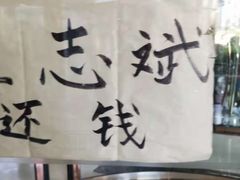 志斌
还钱